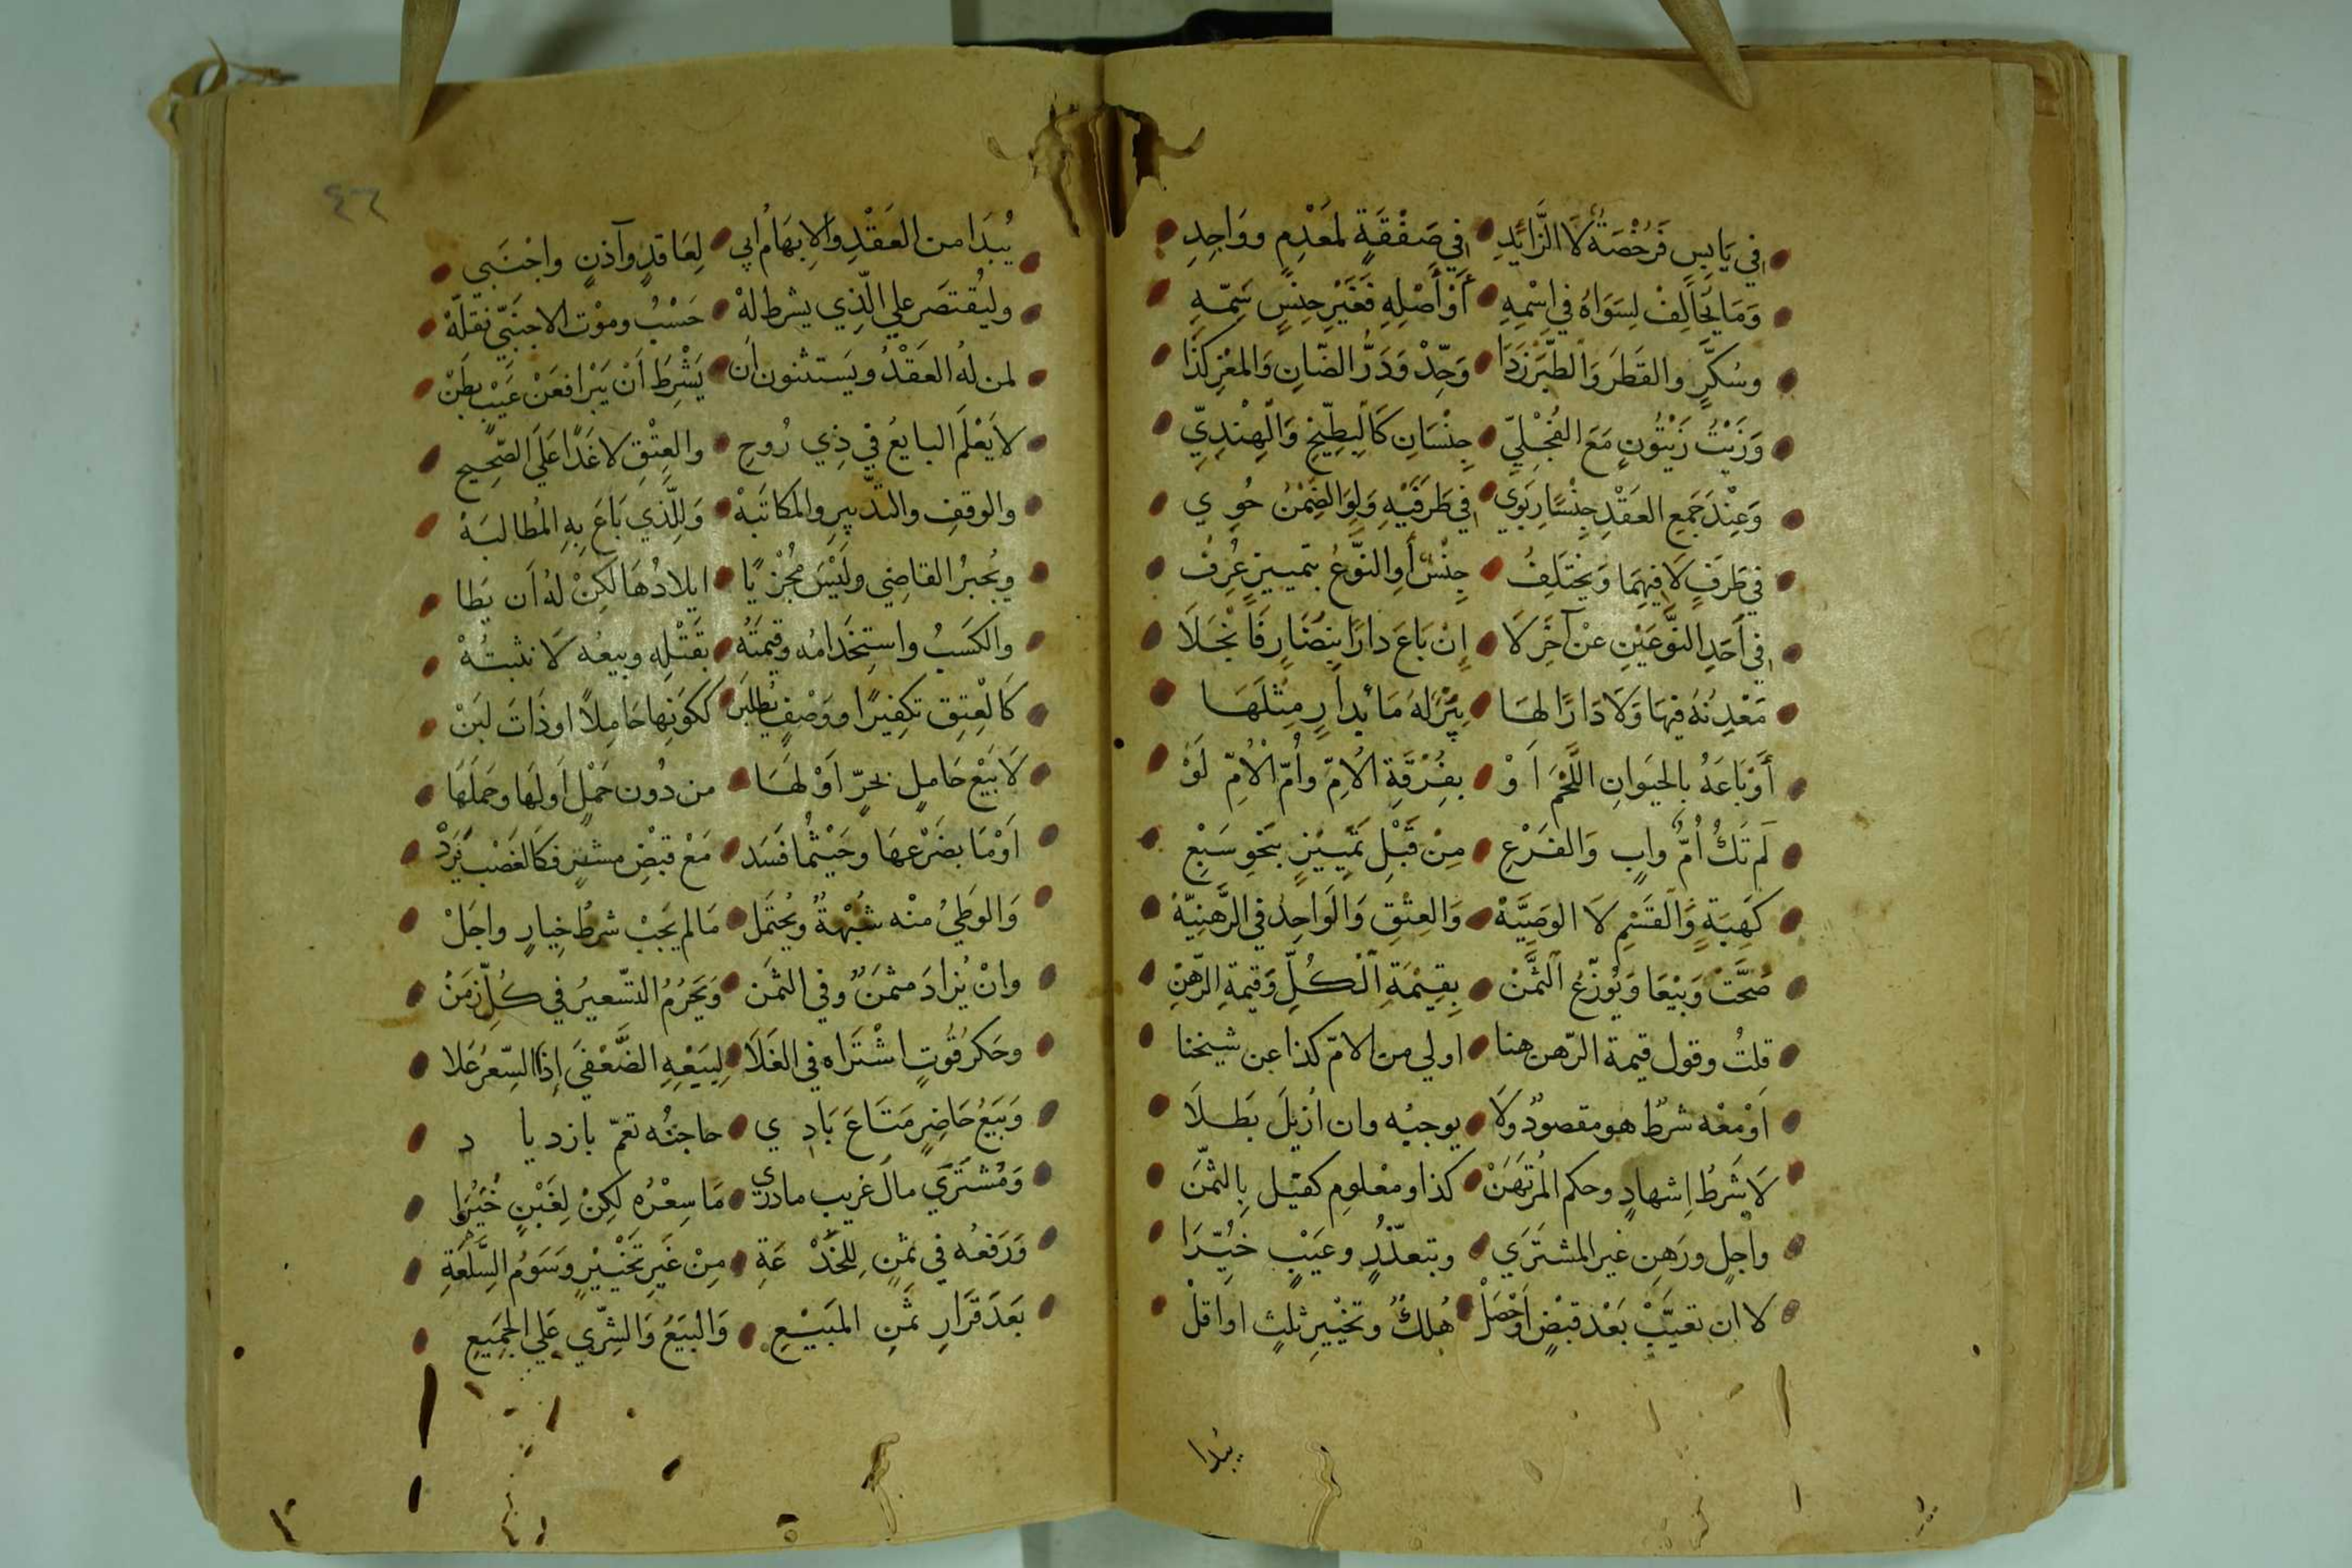 في يَابِسٍ فَرُخْصَةٌ لَا الزَّائِدِ في صَفْقَةٍ لمَعْدِمٍ ووَاجِدِ
وَمَا يُخَالِفْ لِسَوَاهُ في اسْمِهِ أَوْ أَصْلِهِ فَغَيْرِ جِنْسٍ سَمِّهِ
وسُكَّرٍ والقَطَرَ وَالطَّبَرْزَدَا وَحِّدْ وَدَرُّ الضَّانِ وَالمَعْزِ كَذَا
وَزَيْتُ زَيْتُونٍ مَعَ الفُجْلِيِّ جِنْسَانِ كَالبِطِّيخِ وَالهِنْدِيِّ
وَعِنْدَ جَمعِ العَقْدِ جِنْسًا رِبَوِي في طَرَفَيْهِ وَلَوِ الضِّمْنُ حُوِي
في طَرَفٍ لَا فِيهِمَا وَيَخْتَلِفُ جِنْسٌ أَوِ النَّوْعُ بتمييزٍ عُرِفْ
في أَحَدِ النَّوْعَيْنِ عنْ آخَرَ لَا إِنْ بَاعَ دارًا بِنُضَارٍ فَانْجَلَا
مَعْدِنُهُ فِيهَا وَلَا دَارًا لهَا بِئْرٌ لَهُ مَاءٌ بدارٍ مِثْلَهَا
أَوْ بَاعَهُ بِالحَيَوانِ اللَّحْمَ اَوْ بفُرْقَةِ الاُمِّ وأُمِّ الْأُمِّ لَوْ
لَم تَكُ أُمٌّ وابٍ وَالفَرْعِ مِنْ قَبْلِ تَمْيِيزٍ بنَحْوِ سَبْعِ
كَهِبَةٍ وَالقَسْمِ لَا الوَصِيَّهْ وَالعِتْقِ وَالوَاحِدُ في الرَّهنِيَّهْ
صُحَّتْ وَبِيْعَا وَيُوَزَّعُ الثَّمَنْ بِقِيْمَةِ الْكُلِّ وَقيمَةِ الرَّهْنِ
قلتُ وقول قيمة الرّهن هنا اولي من الامّ كذا عن شيخنا
أَوْ مَعْه شرطٌ هو مقصودٌ ولَا يوجبُه وان اُزيلَ بَطَلَا
لَا شَرطُ اِشهادٍ وحكم المُرتَهَنْ كذا ومعْلومِ كفيْل بِالثمَّنَ
واجلٍ ورَهنٍ غير المشتَرَي وبتعذّرٍ وعَيْبٍ خيُّرَا
لا ان تعيَّبْ بَعْد قبْضٍ اَوْحَصَلْ هُلكٌ وتخْيِيرِ ثلثٍ او اقلْ
يُبْدا
٤٦
يُبدَا من العَقْدِ والاِبهَامُ ابي لِعَاقدٍ وآذنٍ واجْنَبي
وليُقتصَر علي الّذِي يشرط لهْ حَسْبُ وموْت الاجنَبيِّ نقلَهْ
لمن لهُ العَقْدُ ويَستثنون اَن يَشْرِطَ اَنْ يَبْرا فعَنْ عَيْبٍ بطَنْ
لا يَعْلَم البايعُ في ذِي رُوحِ والعِتْقِ لا غَدًا عَلَي الصّحِيحِ
والوقفِ والتّدْبيرِ والمكاتَبَهْ وَللّذِي بَاعَ بِهِ المُطالبَهْ
ويُجبرُ القاضِي ولَيْسَ مُجْزِيًا ايلادُهَا لكِنْ لهُ اَن يَطا
والكَسْبُ واستِخدَامُه وقيمَتُه بقَتْلِهِ وبيعُه لَا نثبتُهْ
كَالعِتقِ تكفِيرًا ووَصْفٍ يُطلبَنْ ككَونِها حَامِلاً اوذَاتَ لبَنْ
لَا بَيْعَ حَاملٍ بحُرٍّ اَوْ لهَا من دُون حَمْلٍ اَولهَا وحَملَهَا
اَوْمَا بضَرْعهَا وحَيْثُما فَسَد مَعْ قبْضِ مشترٍ فكَالغَصْبِ يُرَدْ
وَالوَطيُ منْه شُبْهَةٌ ويُحتَمل مَا لم يَجَبْ شرطُ خِيارٍ واجَلْ
وانْ يُزادَ مثمَنٌ وفي الثمَن وَيَحْرُمُ التَّسعيرُ في كُلِّ زمَنْ
وحَكرُ قُوتٍ اشْتَرَاه في الغَلَا لِبَيْعِهِ الضَّعْفيَ إذَا السِّعرُ عَلا
وَبَيعُ حَاضِرٍ مَتَاعَ بَادِي حاجتُه تعمّ بازديا د
وَمُشتَرَي مالَ غريبٍ مادري مَا سِعْرُه لكِنْ لِغَبْنٍ خُيِّرَا
وَرَفعُه في ثمَنٍ لِلخَدْ عَةِ مِنْ غَيرِ تَخْيِيرٍ وَسَوْمُ السِّلْعَةِ
بَعَدَ قَرَارِ ثَمَنِ المَبَيْعِ وَالبيَعُ وَالشِّرَي عَلي الجمَيعِ